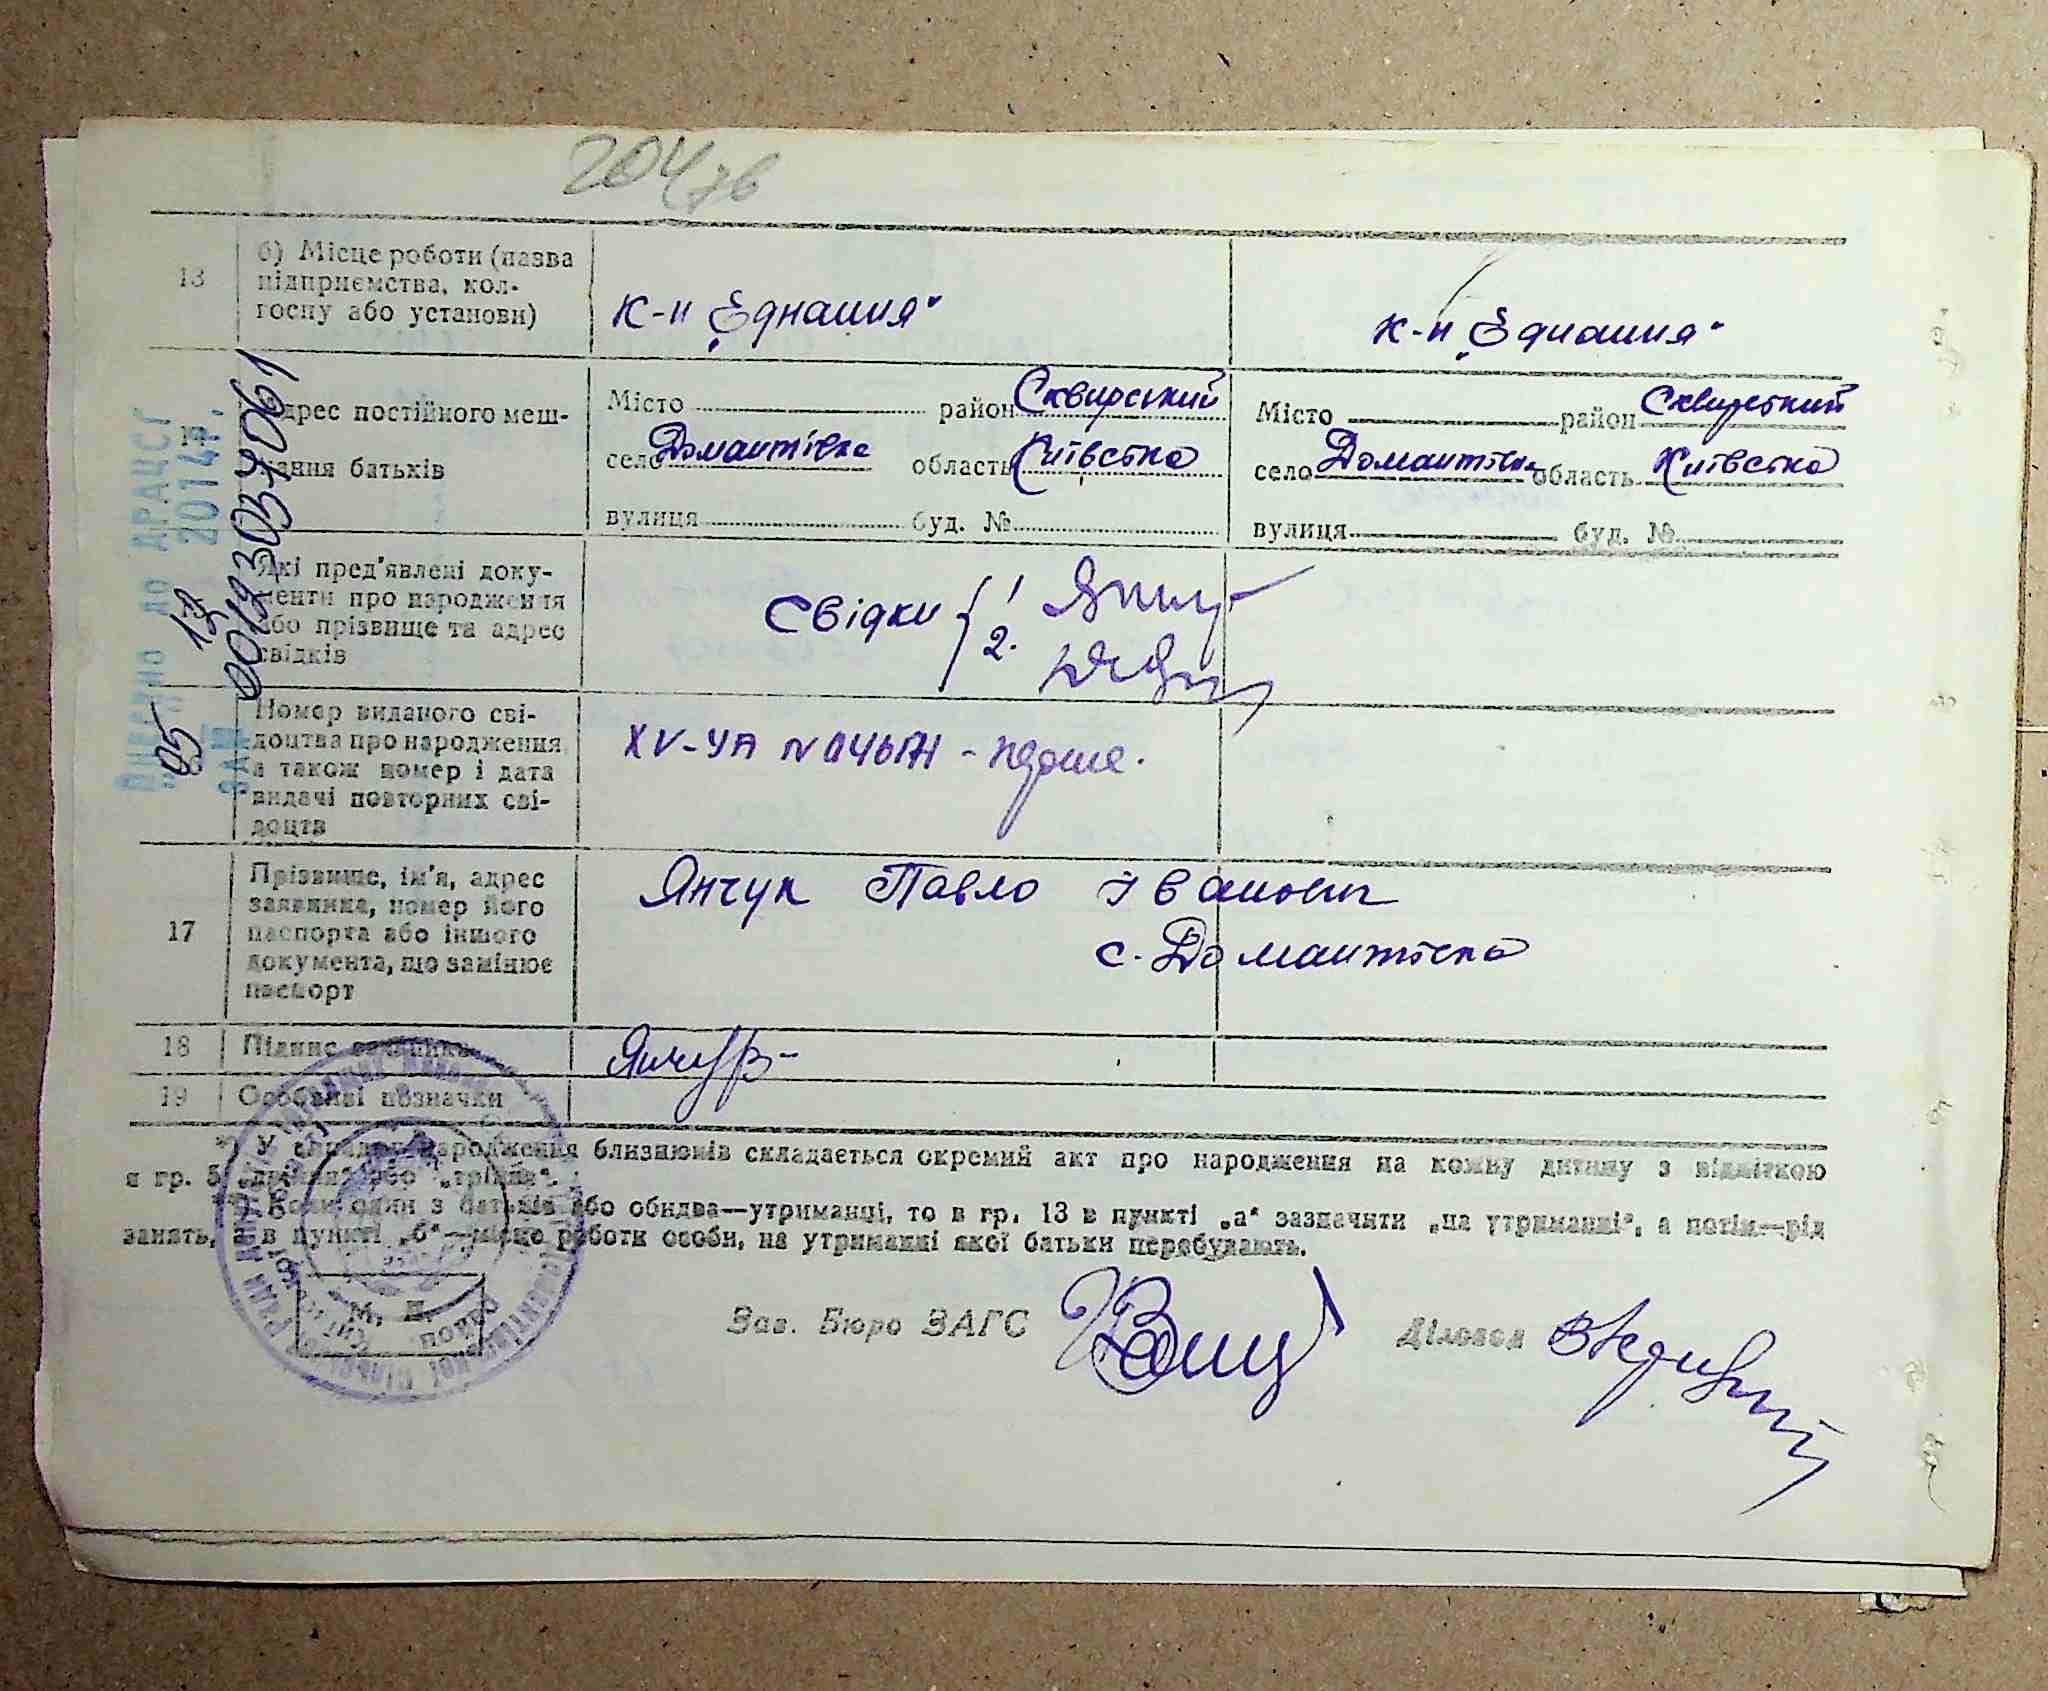 204 зв
13
б) Місце роботи (назва
підприємства, кол-
госпу або установи)
к-п „Єднання"
к-п „Єднання"
Адрес постійного меш-
кання батьків
Місто район Сквирський
село Домантівка область Київська
вулиця буд. №
Місто район Сквирський
село Домантівка область Київська
вулиця буд. №
Які пред'явлені доку-
менти про народження
або прізвище та адрес
свідків
Свідки 1
2.
Номер виданого сві-
доцтва про народження
а також номер і дата
видачі повторних сві-
доцтв
XV-УА N
17
Прізвище, ім'я, адрес
заявника, номер його
паспорта або іншого
документа, що замінює
паспорт
Янчук Павло Іванович
с. Домантівка
18
Підпис заявника
19
Особливі позначки
*) У випадку народження близнюків складається окремий акт про народження на кожну дитину з відміткою
в гр. 5 „двійня" або „трійня".
**) Коли один з батьків або обидва—утриманці, то в гр. 13 в пункті „а" зазначити „на утриманні", а потім—рід
занять, а в пункті „б"—місце роботи особи, на утриманні якої батьки перебувають.
М. П.
Зав. Бюро ЗАГС
Діловод
Внесено до ДРАЦСГ
05 12 2014р.
ЗА № 00193037061